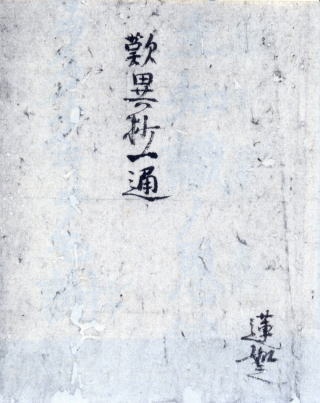 歎異抄一通
蓮如